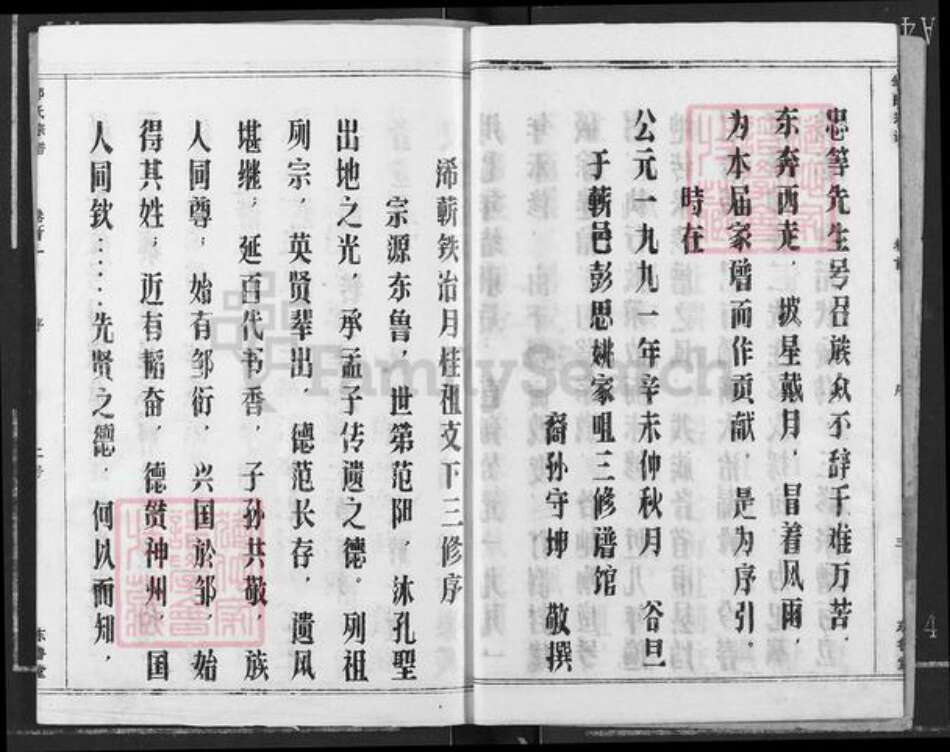 忠等先生号召族众不辞千难万苦，
东奔西走，披星戴月，冒着风雨，
为本届家谱而作贡献，是为序引，
時在
公元一九九一年辛未仲秋月　谷旦
于蕲邑彭思姚家咀三修谱馆
裔孙守坤　敬撰
浠蕲铁冶月桂祖支下三修序
宗源东鲁，世第范阳，沐孔聖
出地之光，承孟子传遗之德。列祖
列宗，英贤辈出，德范长存，遗风
堪继，延百代书香，子孙共敬，族
人同尊，始有邹衍，兴国於邹，始
得其姓，近有韬奋，德贯神州，国
人同钦……先贤之德，何以而知，
FamilySearch
东鲁堂
4
A4